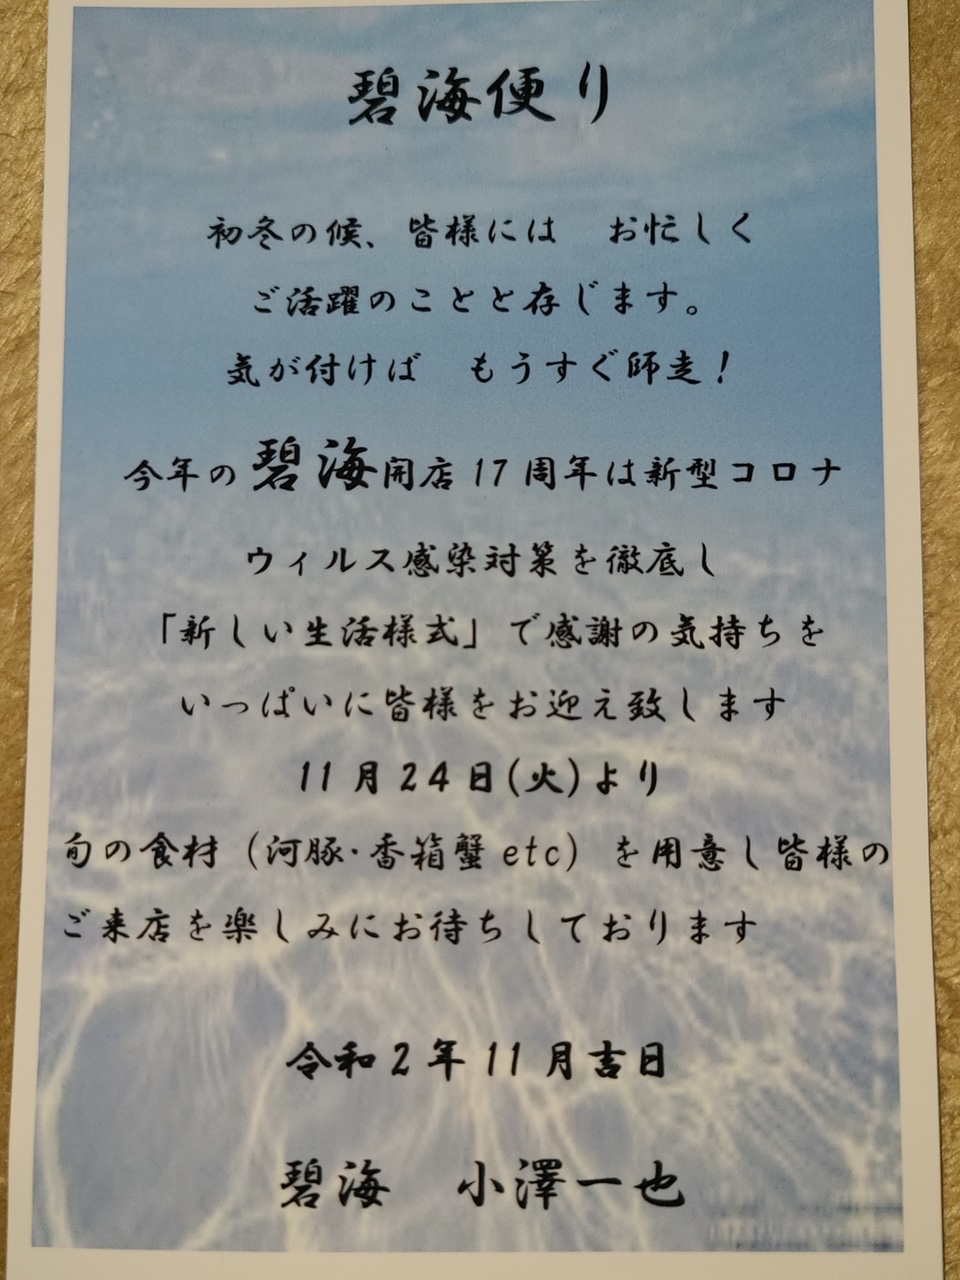 碧海便り
初冬の候、皆様には　お忙しく
ご活躍のことと存じます。
気が付けば　もうすぐ師走！
今年の碧海開店17周年は新型コロナ
ウィルス感染対策を徹底し
「新しい生活様式」で感謝の気持ちを
いっぱいに皆様をお迎え致します
11月24日(火)より
旬の食材（河豚・香箱蟹etc）を用意し皆様の
ご来店を楽しみにお待ちしております
令和2年11月吉日
碧海　小澤一也